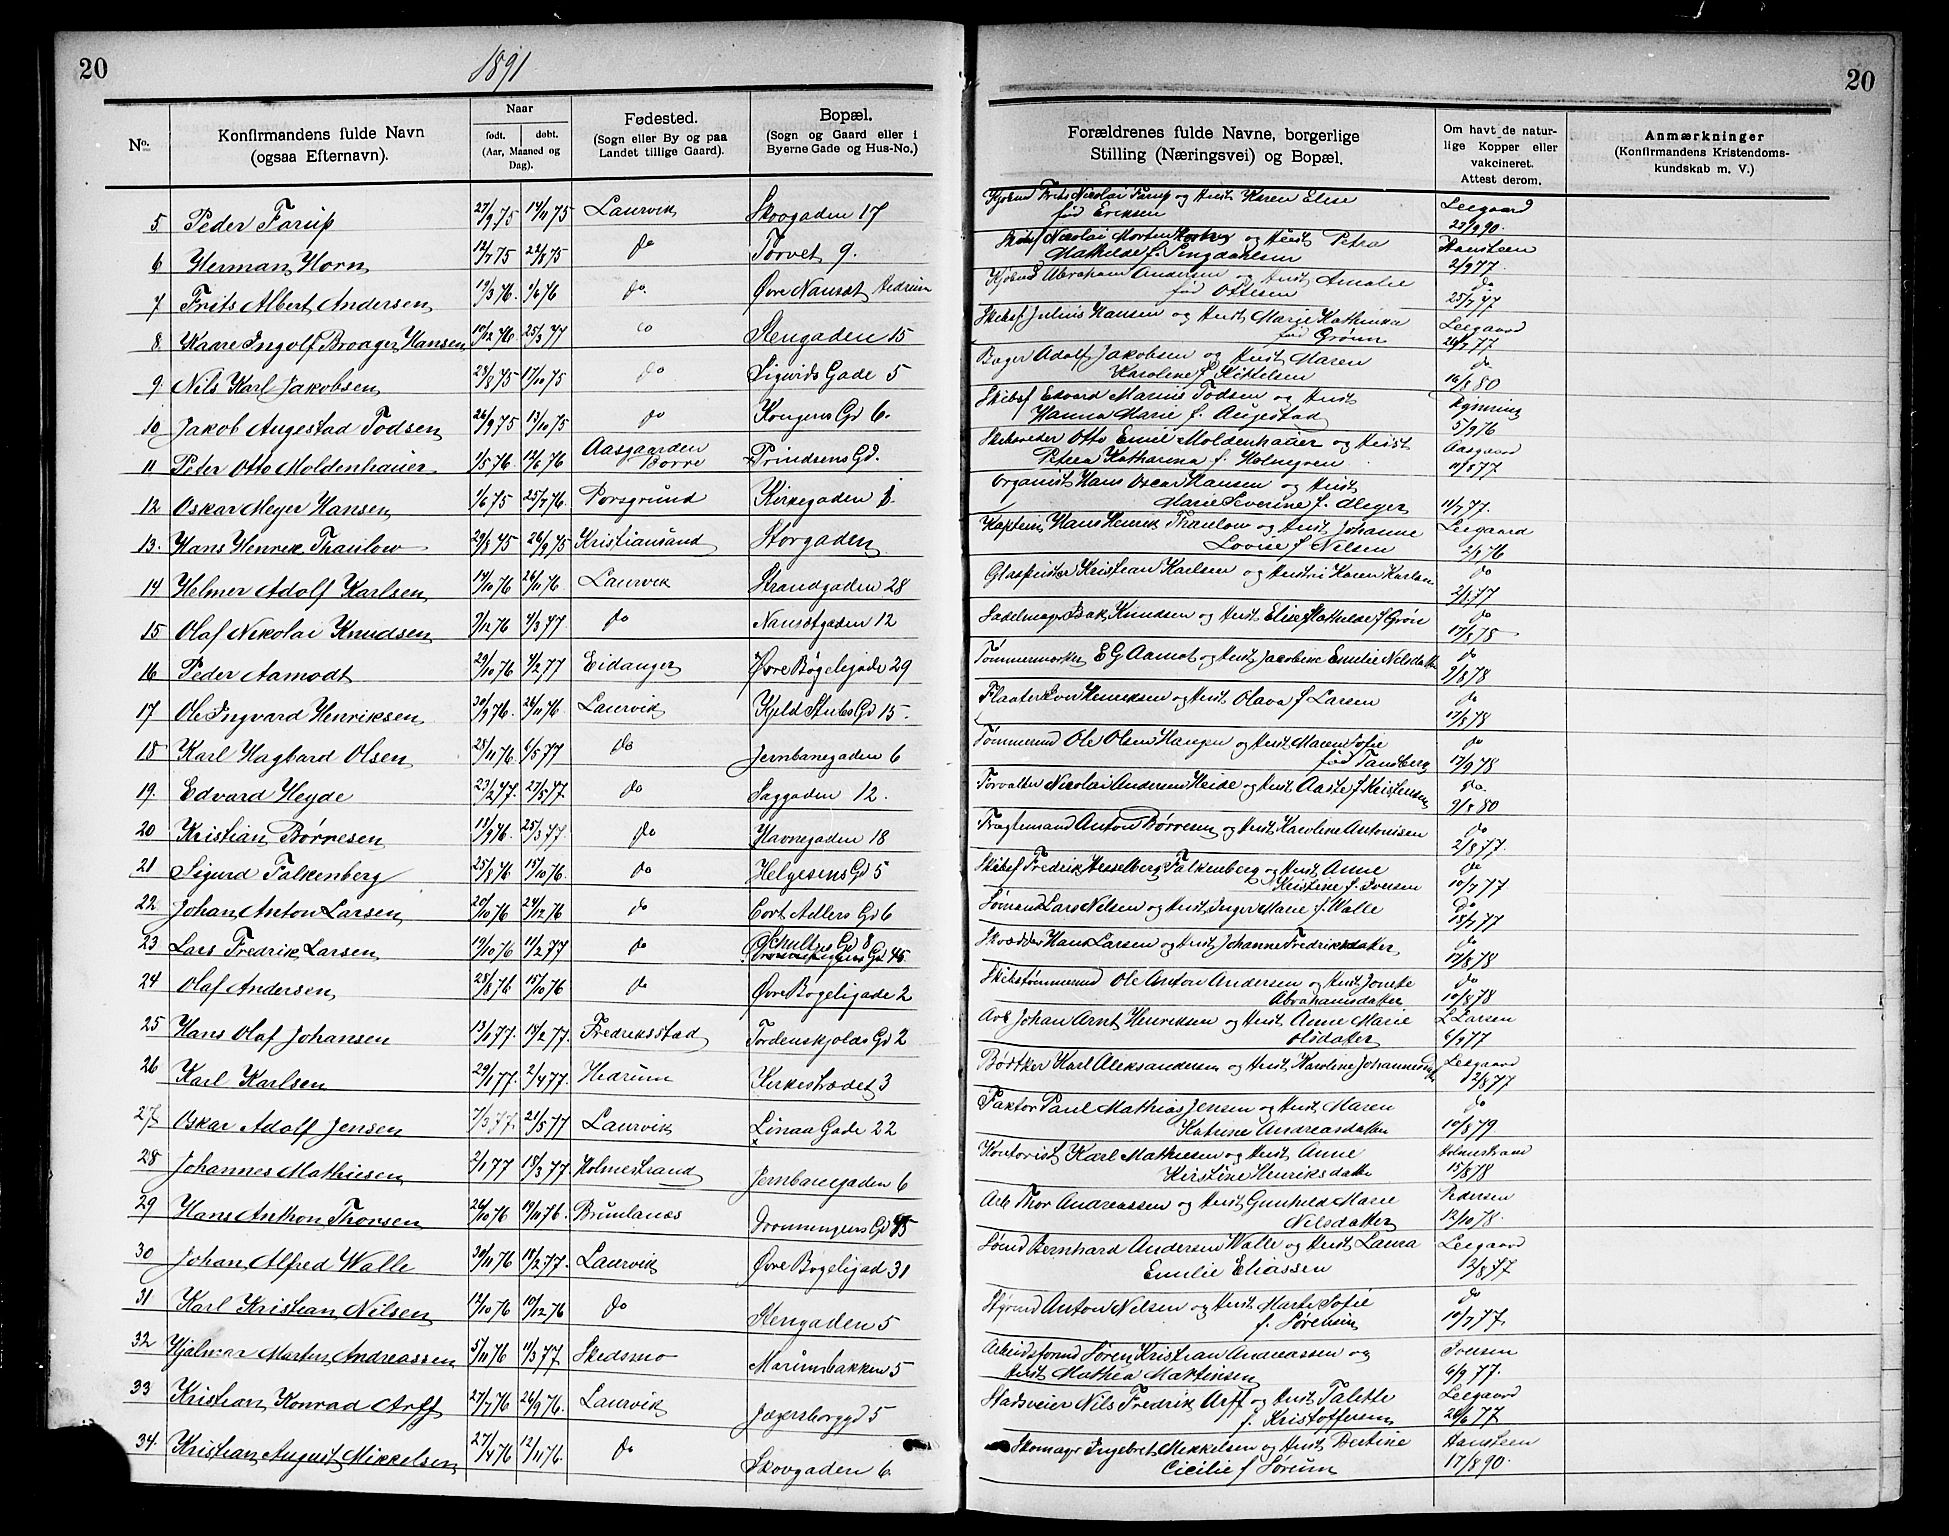 20
1891
No.
Konfirmandens fulde Navn
(ogsaa Efternavn).
Naar
født. døbt.
(Aar, Maaned og
Dag).
Fødested.
(Sogn eller By og paa
Landet tillige Gaard).
Bopæl.
(Sogn og Gaard eller i
Byerne Gade og Hus-No.)
5 Peder Farup 27/9 75 14/11 75 Laurvik Skovgaden 17
6 Herman Horn 12/7 75 22/8 75 do Torvet 9.
7 Frits Albert Andersen 19/3 76. 1/6 76 do. Øvre Nanset Hedrum
8. Kaare Ingolf Broager Hansen 10/12 76 25/3 77 do Stengaden 15
9. Nils Karl Jakobsen 28/8 75 17/10 75 do Sigurds Gade 5
10 Jakob Augestad Todsen 26/9 75 13/10 75 do Kongens Gd 6.
11 Peter Otto Moldenhauer 1/5 76. 12/6 76 Aasgaarden Borre Prindsens Gd.
12 Oskar Meyer Hansen 1/6 75 25/7 76. Porsgrund Kirkegaden 1.
13. Hans Henrik Thaulow 29/8 75 26/9 75 Kristiansand Storgaden
14 Helmer Adolf Karlsen 14/10 76 26/11 76 Laurvik Strandgaden 28
15 Olaf Nikolai Knudsen 9/12 76 4/3 77 do Nansetgaden 12
16 Peder Aamodt 29/10 76 4/2 77 Eidanger Øvre Bøgeligade 29
17 Ole Ingvard Henriksen 30/9 76. 26/11 76 Laurvik Kjeld Stubs Gd 15.
18 Karl Hagbard Olsen 28/11 76 6/5 77 do Jernbanegaden 6
19. Edvard Heyde 23/2 77. 27/5 77. do Saggaden 12.
20 Kristian Børresen 18/9 76. 25/3 77 do Havnegaden 18
21 Sigurd Falkenberg 25/8 76 15/10 76. do Helgesens Gd 5
22 Johan Anton Larsen 20/10 76 24/12 76 do Cort Adlers Gd 6
23 Lars Fredrik Larsen 19/10 76 11/2 77 do Schultzes Gd 8
24 Olaf Andersen 28/8 76 15/10 76 do Øvre Bøgeligade 2
25 Hans Olaf Johansen 13/1 77. 18/2 77. Fredriksstad Tordenskjolds Gd 2
26 Karl Karlsen 29/1 77. 2/4 77. Hedrum Kirkestrædet 3
27 Oskar Adolf Jensen 7/3 77. 21/5 77 Laurvik Linaa Gade 22
28 Johannes Mathiesen 2/1 77 18/3 77 Holmestrand Jernbanegaden 6
29 Hans Anthon Thorsen 26/10 76 19/11 76. Brunlanes Dronningens Gd 45
30 Johan Alfred Walle 30/11 76 18/2 77. Laurvik Øvre Bøgeligad 31
31 Karl Kristian Nilsen 12/10 76 10/12 76 do Stengaden 5
32 Hjalmar Martin Andreassen 5/11 76 11/3 77 Skedsmo Marumbakken 5
33 Kristian Konrad Arff 27/7 76 26/9 76. Laurvik Jægersborggd 5
34. Kristian August Mikkelsen 27/4 76 12/11 76. do Skovgaden 6.
20
Forældrenes fulde Navne, borgerlige
Stilling (Næringsvei) og Bopæl.
Om havt de natur-
lige Kopper eller
vakcineret.
Attest derom.
Anmærkninger
(Konfirmandens Kristendoms-
kundskab m. V.)
Kjøbmd Frits Nicolai Farup og Hust Karen Elise Leegaard
fød Eriksen 23/9 90.
Skibsf Nicolai Morten og Hust Petra Hansteen
Mathilde f. Smgdahlsen 2/9 77.
Kjøbmd Abraham Andersen og Hust Amalie do
fød Ottesen 25/7 77
Skibsf Julius Hansen og Hust Marje Kathinka Leegaard
fød Grønn 26/7 77
Bager Adolf Jakobsen og Hust Maren do
Karoline f Kittelsen 16/8 80
Skibsf Edvard Marius Todsen og Hust
Hanna Marie f. Augestad 5/9 76
Skibsreder Otto Emil Moldenhauer og Hust Aasgaard
Petrea Katharina f. Holmgren 11/8 77
Organist Hans Oscar Hansen og Hust
Marie Severine f. Meyer 11/7 77.
Kaptein Hans Henrik Thaulow og Hust Johanne Leegaard
Lovise f Nilsen 2/9 76
Glaspuster Kristian Karlsen og Hustru Karen Karlsen do
2/8 77
Sadelmager Isak Knudsen og Hust Elise Mathilde f Grøn do
17/8 78
Tømmermerker E G Aamot og Hust Jacobine Emilie Nilsdatter do
9/8 78
Flaater Iver Henriksen og Hust Olava f Larsen do
17/8 78
Tømmermd Ole Olsen Haugen og Hust Maren Sofie do
fød Tandberg 17/9 78
Forvalter Nicolai Andersen Heide og Hust Aaste f Kristensen do.
9/8 80
Fragtemand Anton Børresen og Hust Karoline Antonisen do
2/8 77.
Skibsf Fredrik Hesselberg Falkenberg og Hust Anne do
Kristine f. Iversen 10/7 77
Sømand Lars Nilsen og Hust Inger Marie f. Walle do
18/7 77
Skrædder Hans Larsen og Hust Johanne Fredriksdatter do
17/8 78
Skibstømmermd Ole Anton Andersen og Hust Jonette do
Abrahamsdatter 10/8 78
Arb Johan Arnt Henriksen og Hust Anne Marie L Larsen
Olsdatter 6/9 77
Bødtker Karl Aleksandersen og Hust Karoline Johannesdatter Leegaard
12/8 77
Faktor Paul Mathias Jensen og Hust Maren do
Katrine Andreasdatter 10/8 79
Kontorist Karl Mathiesen og Hust Anne Holmestrand
Kirstine Henriksdatter 15/8 78
Arb Thor Andreassen og Hust Gunhild Marie Pedersen
Nilsdatter 12/10 78.
Sømd Bernhard Andersen Walle og Hust Laura Leegaard
Emilie Eliassen 12/8 77
Styrmd Anton Nilsen og Hust Marte Sofie do
f. Sørensen 10/7 77.
Arbeidsformd Søren Kristian Andreassen og Iversen
Hust Mathea Martinsen 6/9 77.
Stadsveier Nils Fredrik Arff og Hust Talette Leegaard
f. Kristoffersen 26/6 77
Skomager Ingebret Mikkelsen og Hust Bertine Hansteen
Cicilie f Sørum 17/8 90.